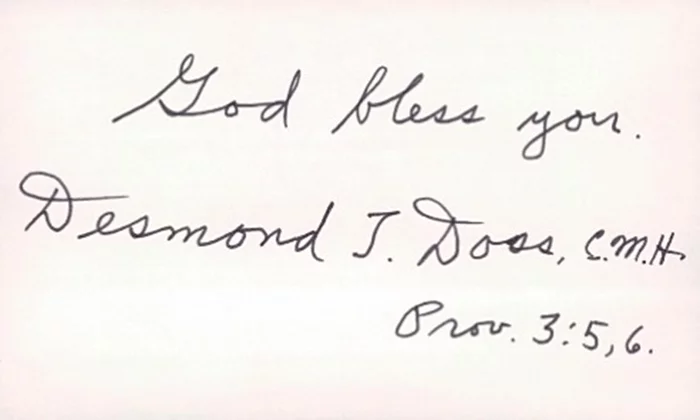 God bless you.
Desmond T. Doss, C.M.H.
Prov. 3:5,6.